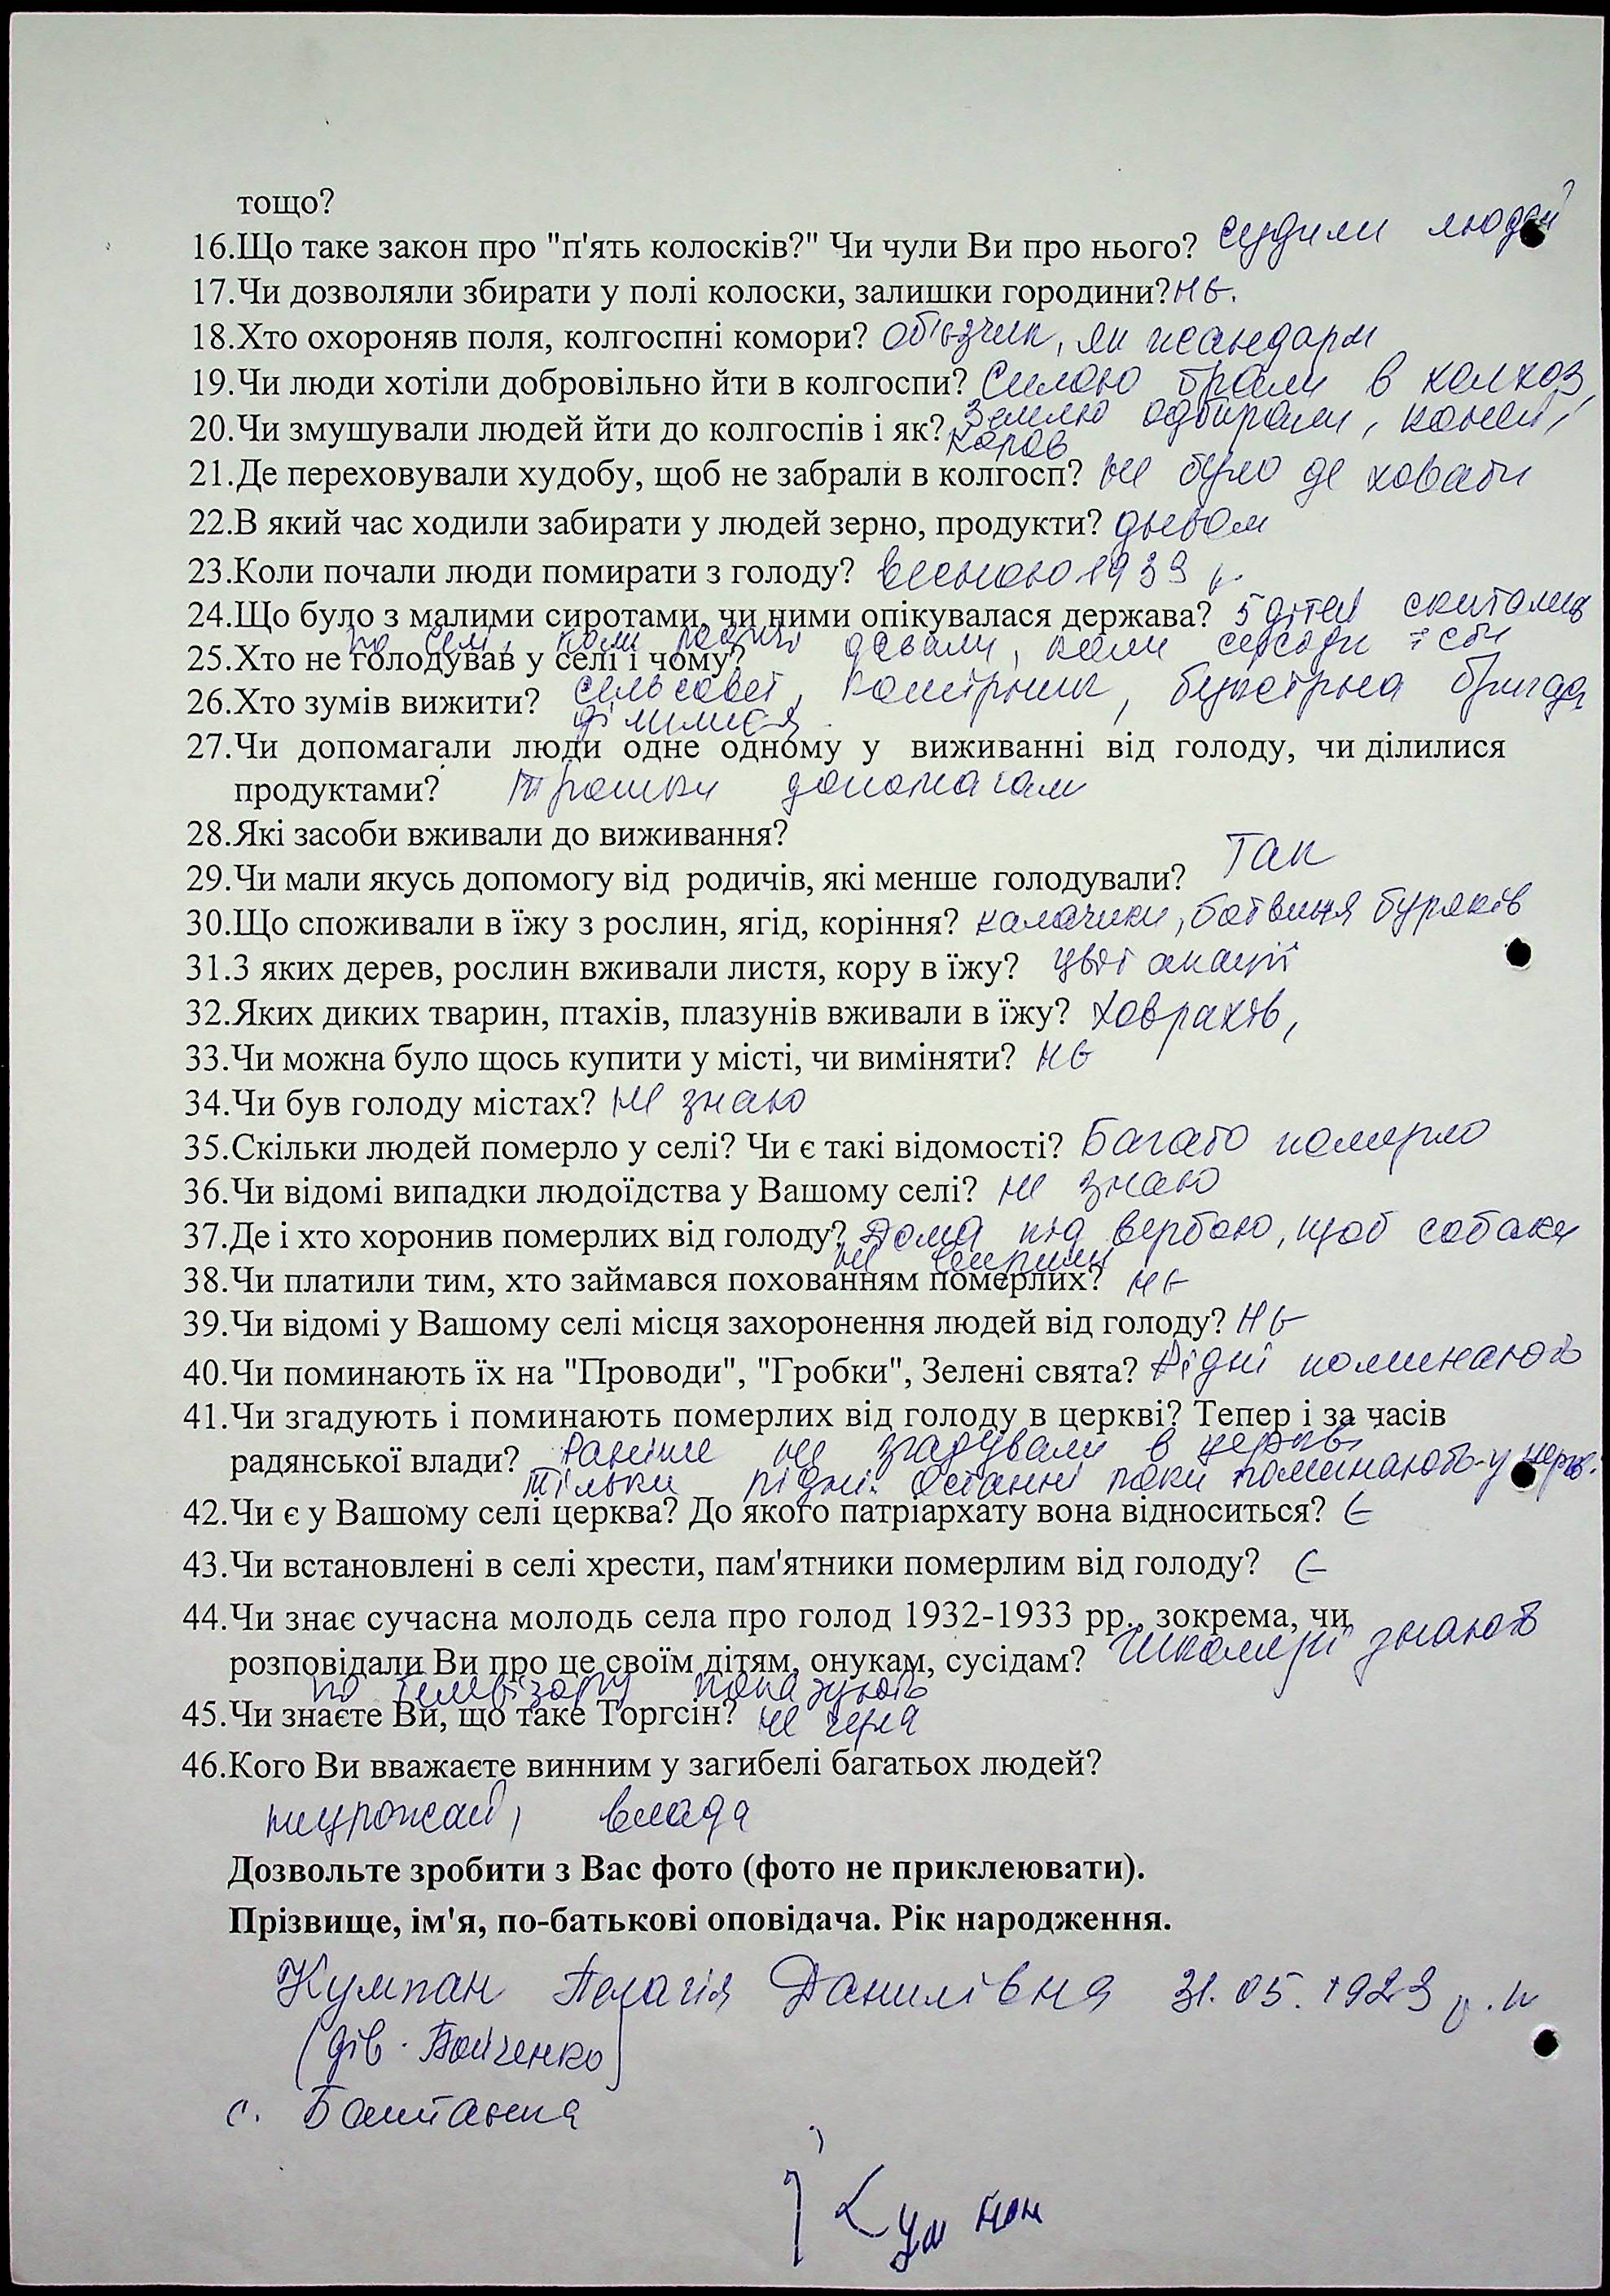 тощо?
16.Що таке закон про "п'ять колосків?" Чи чули Ви про нього? судили людей
17.Чи дозволяли збирати у полі колоски, залишки городини? нє.
18.Хто охороняв поля, колгоспні комори? об'єзчик, як жандарм
19.Чи люди хотіли добровільно йти в колгоспи? Силою брали в колхоз,
20.Чи змушували людей йти до колгоспів і як? Землю одбирали, коней,
коров
21.Де переховували худобу, щоб не забрали в колгосп? не було де ховати
22.В який час ходили забирати у людей зерно, продукти? дньом
23.Коли почали люди помирати з голоду? весною 1933 р.
24.Що було з малими сиротами, чи ними опікувалася держава? 5 дітей скиталися
по селі, коли родичі давали, коли сусіди їсти
25.Хто не голодував у селі і чому?
26.Хто зумів вижити? сельсовет, комірник, буксірна бригада
ділилися
27.Чи допомагали люди одне одному у виживанні від голоду, чи ділилися
продуктами? Трошки допомагали
28.Які засоби вживали до виживання?
29.Чи мали якусь допомогу від родичів, які менше голодували? Так
30.Що споживали в їжу з рослин, ягід, коріння? калачики, ботвиння буряків
31.З яких дерев, рослин вживали листя, кору в їжу? цвіт акації
32.Яких диких тварин, птахів, плазунів вживали в їжу? Ховрахів,
33.Чи можна було щось купити у місті, чи виміняти? нє
34.Чи був голоду містах? не знаю
35.Скільки людей померло у селі? Чи є такі відомості? Багато померло
36.Чи відомі випадки людоїдства у Вашому селі? не знаю
37.Де і хто хоронив померлих від голоду? Дома під вербою, щоб собаки
не
38.Чи платили тим, хто займався похованням померлих? нє
39.Чи відомі у Вашому селі місця захоронення людей від голоду? Нє
40.Чи поминають їх на "Проводи", "Гробки", Зелені свята? Рідні поминають
41.Чи згадують і поминають померлих від голоду в церкві? Тепер і за часів
радянської влади? Раніше не згадували в церкві,
тільки рідні. Останні роки поминають у церкв.
42.Чи є у Вашому селі церква? До якого патріархату вона відноситься? Є
43.Чи встановлені в селі хрести, пам'ятники померлим від голоду? Є
44.Чи знає сучасна молодь села про голод 1932-1933 рр., зокрема, чи
розповідали Ви про це своїм дітям, онукам, сусідам? Школярі знають
по телевізору показують
45.Чи знаєте Ви, що таке Торгсін? не чула
46.Кого Ви вважаєте винним у загибелі багатьох людей?
неурожай, влада
Дозвольте зробити з Вас фото (фото не приклеювати).
Прізвище, ім'я, по-батькові оповідача. Рік народження.
Кумпан Пелагія Данилівна 31.05.1923 р.н
(дів. Бойченко)
с. Баштанка
Кумпан